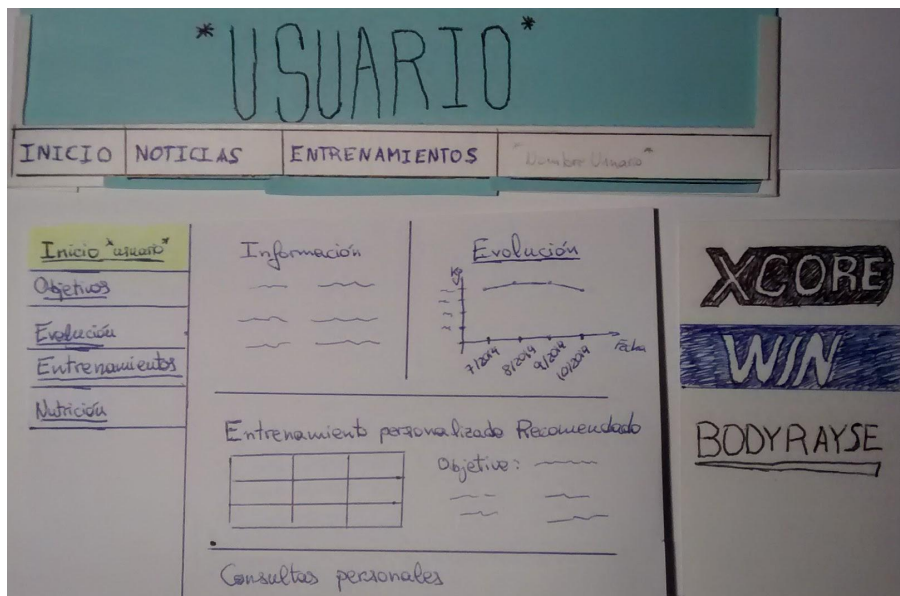 *USUARIO*
INICIO
NOTICIAS
ENTRENAMIENTOS
"Nombre Usuario"
Inicio "usuario"
Objetivos
Evolución
Entrenamientos
Nutrición
Información
Evolución
Kg
7/2014
8/2014
9/2014
10/2014
Fecha
Entrenamiento personalizado Recomendado
Objetivo:
Consultas personales
XCORE
WIN
BODYRAYSE